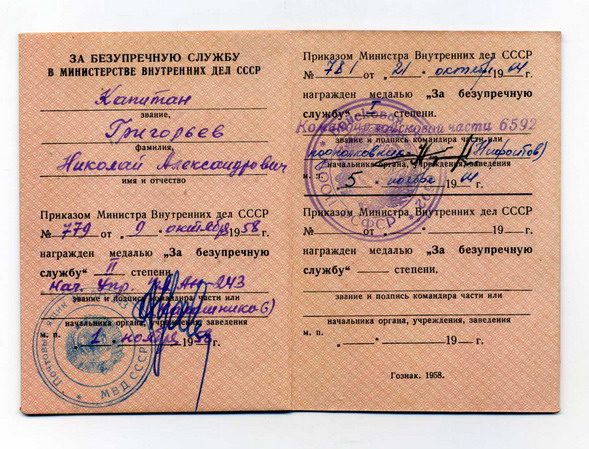 ЗА БЕЗУПРЕЧНУЮ СЛУЖБУ
В МИНИСТЕРСТВЕ ВНУТРЕННИХ ДЕЛ СССР
Капитан
звание,
Григорьев
фамилия,
Николай Александрович
имя и отчество
Приказом Министра Внутренних дел СССР
№ 779 от „ 9 “ октября 1958 г.
награжден медалью „За безупречную
службу“ II степени.
Нач. Упр. АН-243
звание и подпись командира части или
начальника органа, учреждения, заведения
м. п. „ 1 “ ноября 1958
Почтовый ящик
МВД СССР
Приказом Министра Внутренних дел СССР
№ 781 от „ 21 “ октября 1964 г.
награжден медалью „За безупречную
службу“ I степени.
Командир войсковой части 6592
звание и подпись командира части или
подполковник
начальника органа, учреждения, заведения
м. п. „ 5 “ ноября 1964 г.
Приказом Министра Внутренних дел СССР
№ от „ “ 19 г.
награжден медалью „За безупречную
службу“ степени.
звание и подпись командира части или
начальника органа, учреждения, заведения
м. п. „ “ 19 г.
Гознак. 1958.